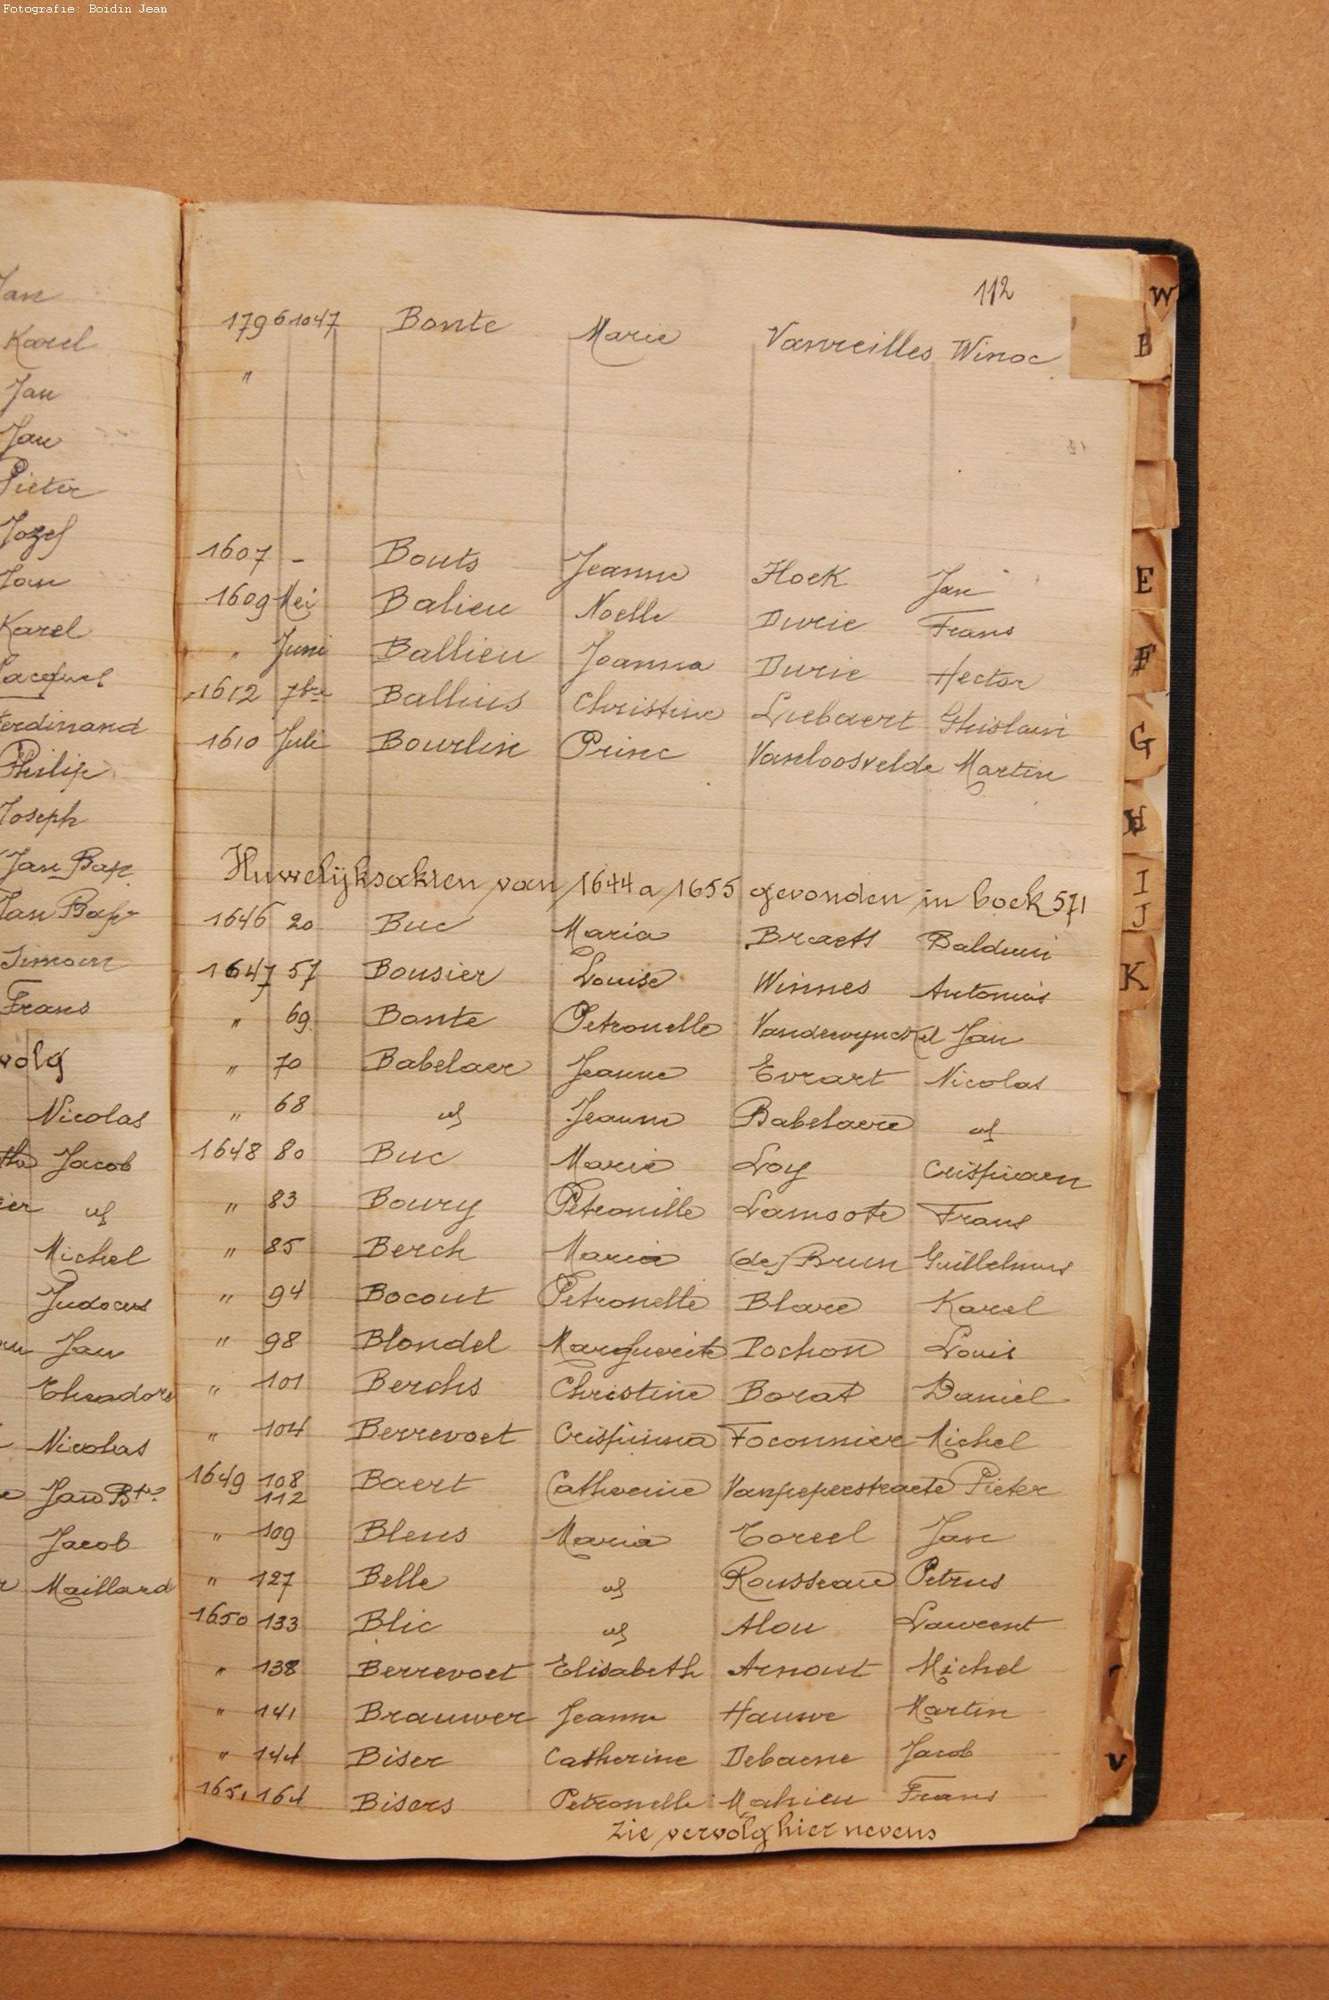 Fotografie: Boidin Jean
112
1796 1047 Bonte Marie Vanreilles Winoc
"
1607 - Bouts Jeanne Hoek Jan
1609 Mei Balieu Noelle Durie Frans
" Juni Ballieu Joanna Durie Hector
1612 7bre Ballius Christine Liebaert Ghislain
1610 Juli Bourlin Princ Vanloosvelde Martin
Huwelijksakten van 1644 a 1655 gevonden in boek 571
1646 20 Buc Maria Braets Balduin
1647 57 Bousier Louise Winnes Antonius
" 69 Bonte Petronelle Vandewynckel Jan
" 70 Babelaer Jeanne Evrart Nicolas
" 68 id Jeanne Babelaere id
1648 80 Buc Marie Loy Crispiaen
" 83 Boury Petronille Lamoote Frans
" 85 Berch Maria (de) Brun Guillelmus
" 94 Bocout Petronelle Blare Karel
" 98 Blondel Marguerite Pochon Louis
" 101 Berchs Christine Borat Daniel
" 104 Berrevoet Crispinna Foconnier Michel
1649 108 112 Baert Catherine Vanpeperstraete Pieter
" 109 Bleus Maria Toreel Jan
" 127 Belle id Rousseau Petrus
1650 133 Blic id Alou Laurent
" 138 Berrevoet Elisabeth Arnout Michel
" 141 Brauwer Jeanne Hauwe Martin
" 144 Biser Catherine Debaene Jacob
1651 164 Bisers Petronelle Mahieu Frans
zie vervolg hier nevens
Jan
Karel
Jan
Jan
Pieter
Jozef
Jan
Karel
Jacques
Ferdinand
Philip
Joseph
Jan Bap.
Jan Bap.
Simoen
Frans
volg
Nicolas
Jacob
id
Michel
Judocus
Jan
Theodore
Nicolas
Jan Bte
Jacob
Maillard
W
B
E
F
G
H
I
J
K
V